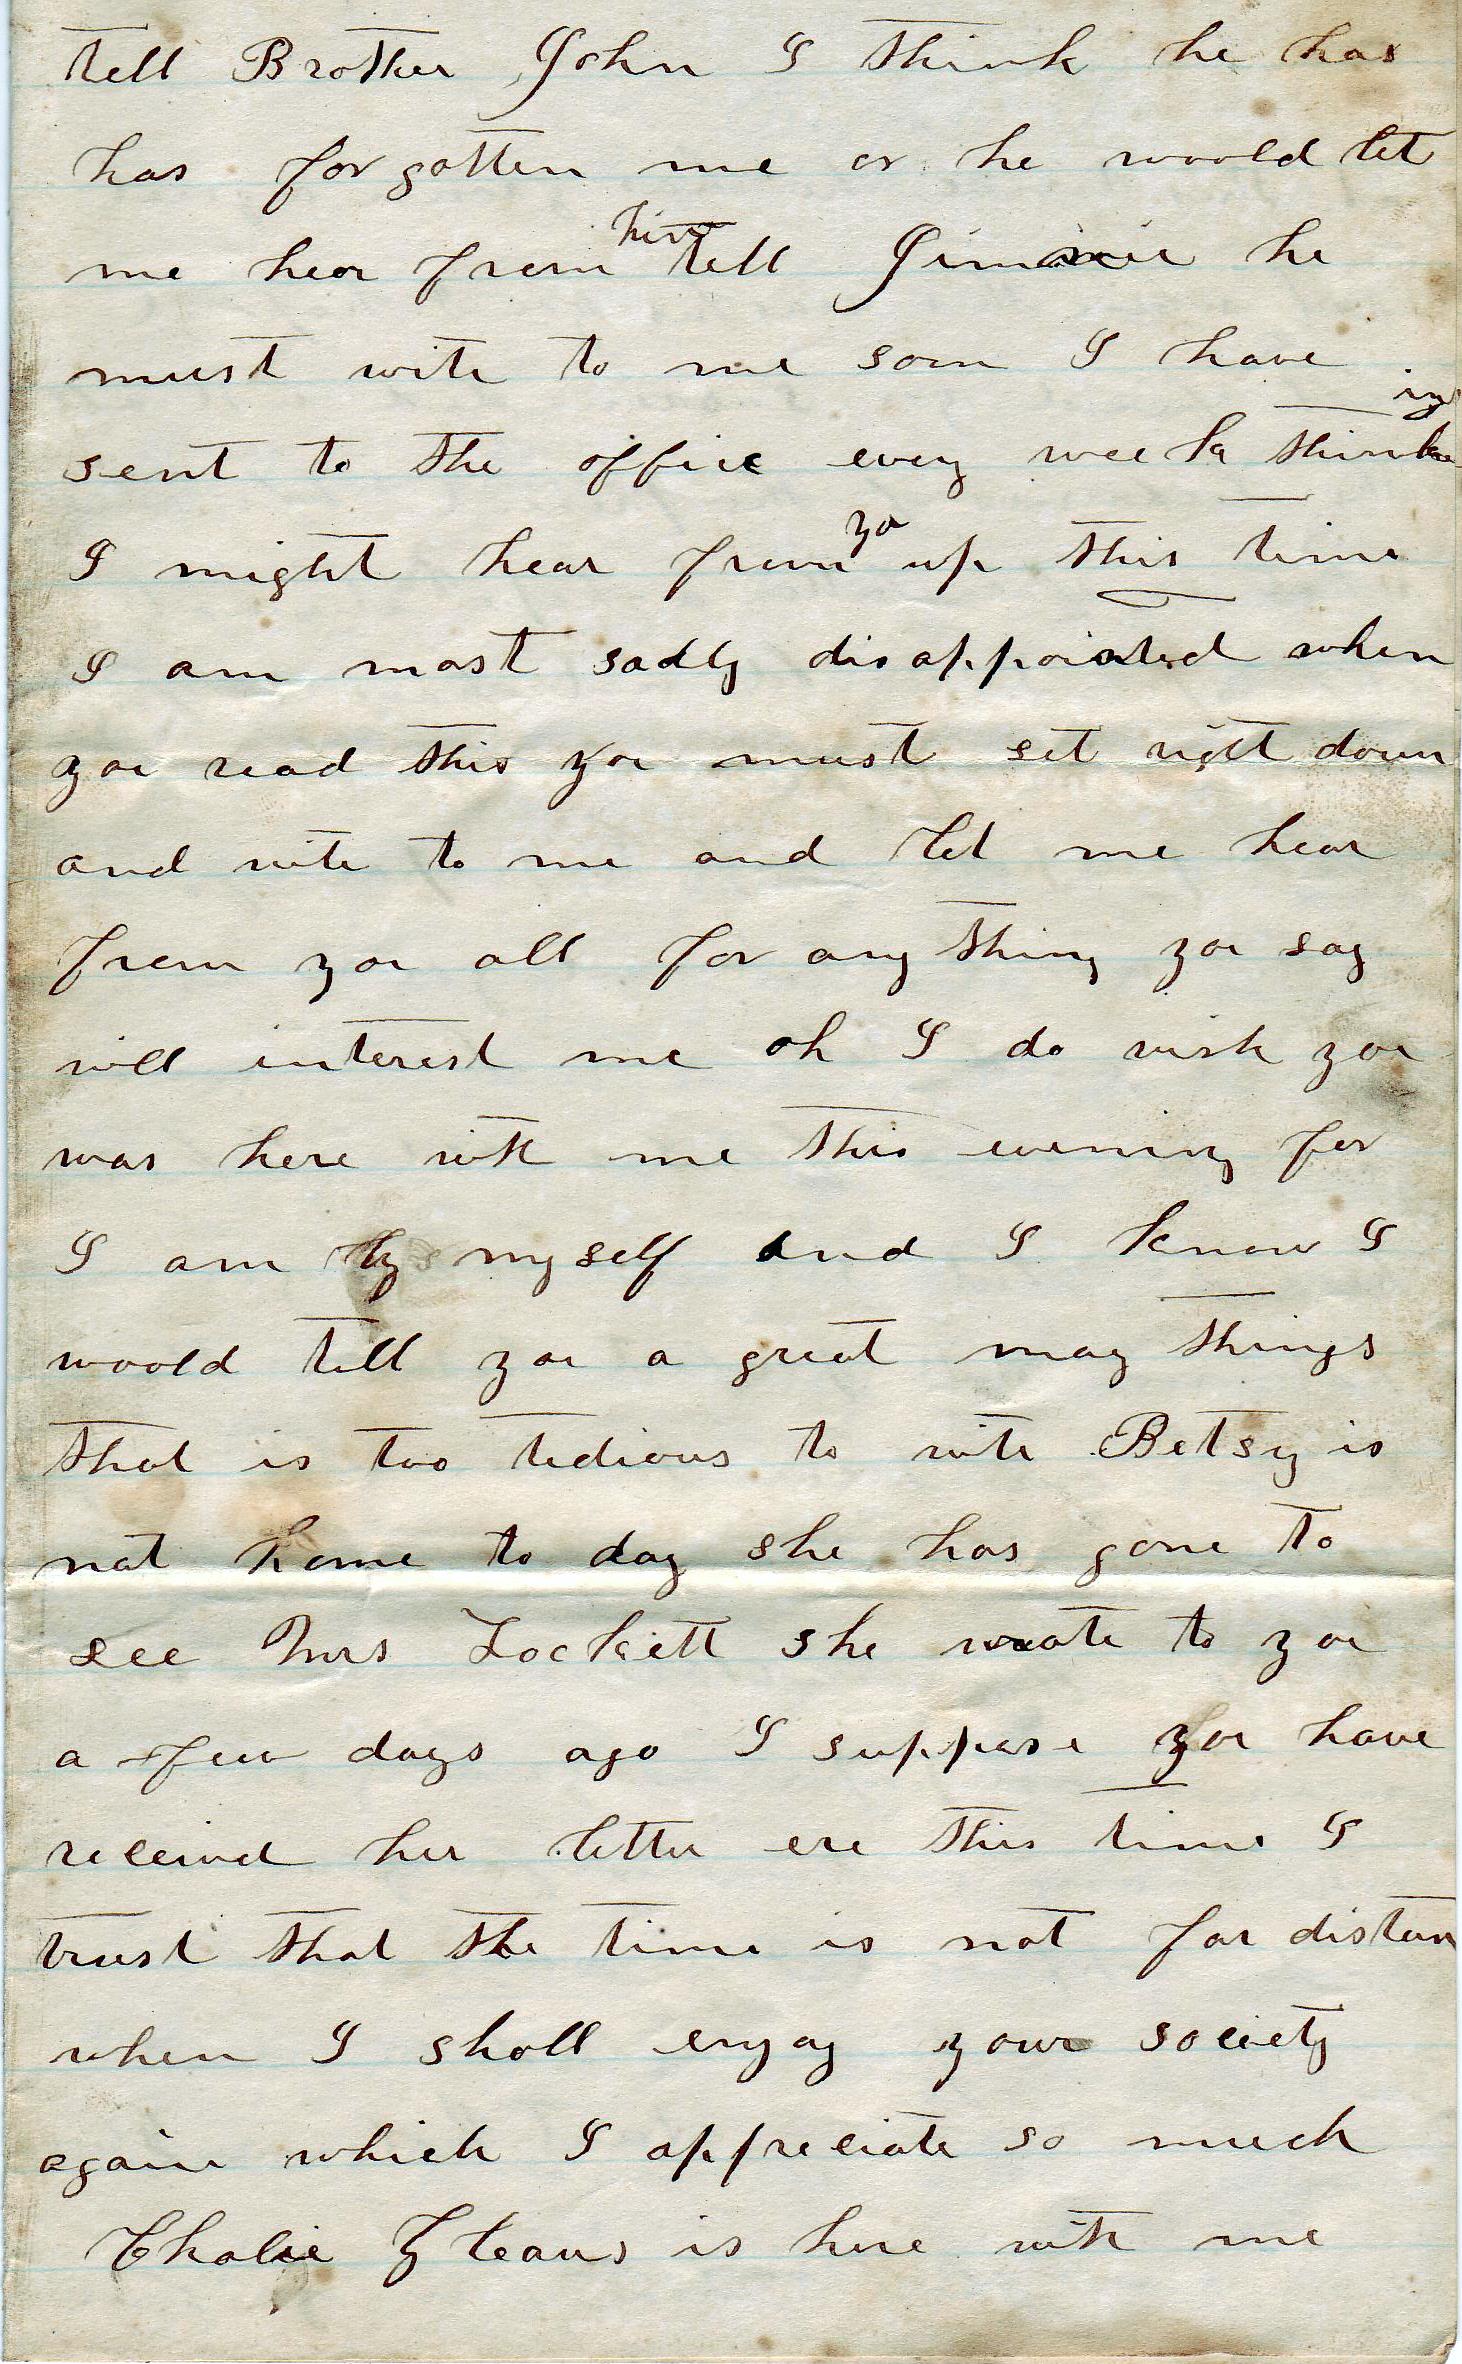 tell Brother John I think he has
has for gotten me or he woold let
me hear from him tell Jimmie he
must wite to me soon I have
sent to the office evey week thinking
I might hear from yo up this time
I am most sadly disappointed when
you read this you must set right down
and wite to me and let me hear
from you all for any thing you say
will interest me oh I do wish you
was here with me this evening for
I am by myself and I know I
woold tell you a great may things
that is too tedious to wite Betsy is
not home to day she has gone to
see Mrs Lockett she wrote to you
a few days ago I suppose you have
received her letter ere this time I
trust that the time is not far distan
when I shall enjoy your society
again which I appreciate so much
Chalie is here with me